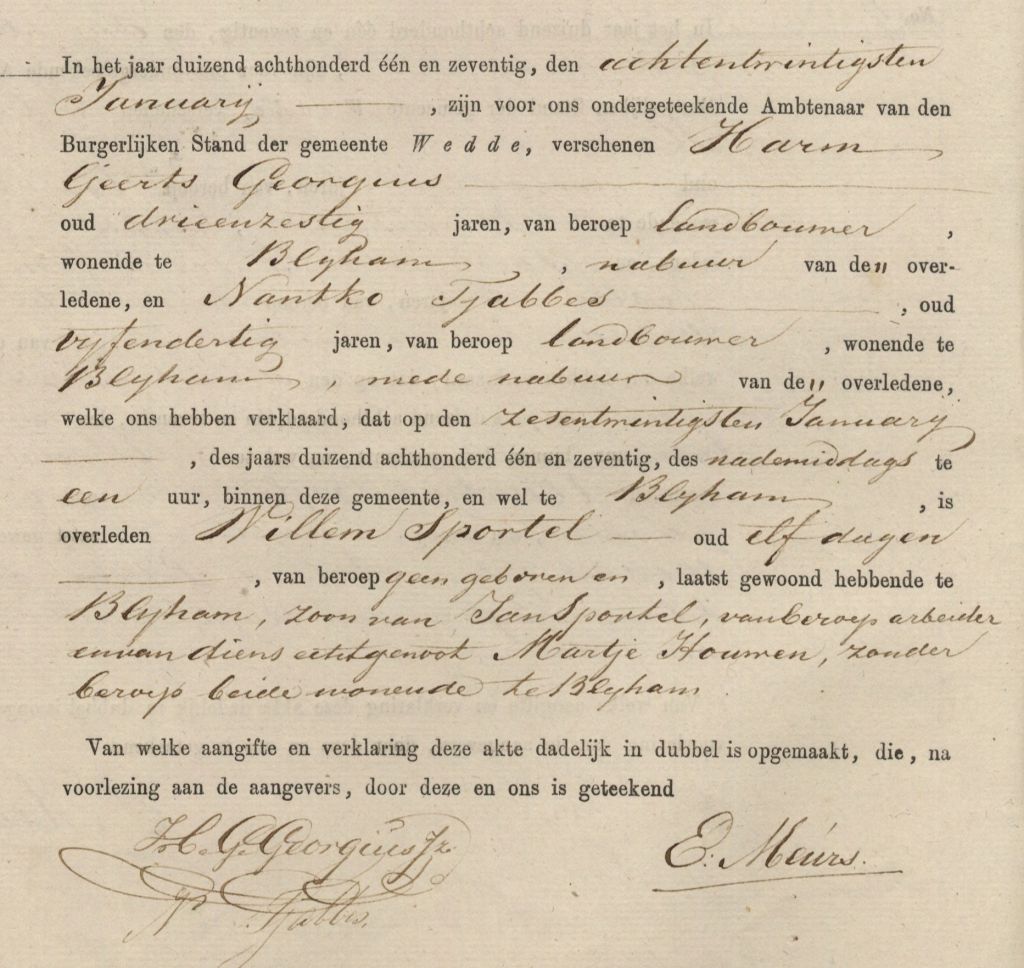 In het jaar duizend achthonderd één en zeventig, den achtentwintigsten
Januarij ——— , zijn voor ons ondergeteekende Ambtenaar van den
Burgerlijken Stand der gemeente Wedde, verschenen Harm
Geerts Georgius ———
oud drieenzestig jaren, van beroep landbouwer ,
wonende te Blyham , nabuur van de" over-
ledene, en Nantko Tjabbes ——— , oud
vyfendertig jaren, van beroep landbouwer , wonende te
Blyham , mede nabuur van de" overledene,
welke ons hebben verklaard, dat op den zesentwintigsten January
——— , des jaars duizend achthonderd één en zeventig, des nademiddags te
een uur, binnen deze gemeente, en wel te Blyham , is
overleden Willem Sportel — oud elf dagen
——— , van beroep geen geboren en , laatst gewoond hebbende te
Blyham, zoon van Jan Sportel, van beroep arbeider
en van diens echtgenoot Martje Houwen, zonder
beroep beide wonende te Blyham
Van welke aangifte en verklaring deze akte dadelijk in dubbel is opgemaakt, die, na
voorlezing aan de aangevers, door deze en ons is geteekend
H. G. Georgius Jz. E: Meurs.
N Tjabbes.